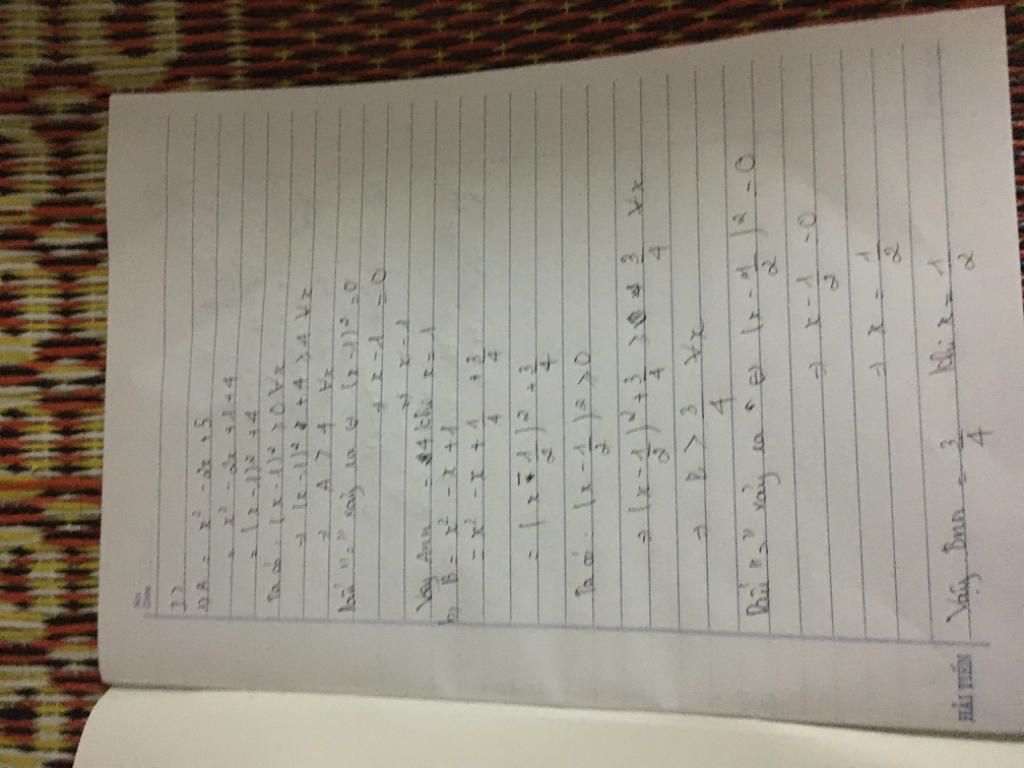 Date
I)
a) A = x² - 2x + 5
= x² - 2x + 1 + 4
= (x - 1)² + 4
Ta có: (x - 1)² ≥ 0 ∀x
⇒ (x - 1)² + 4 ≥ 4 ∀x
⇒ A ≥ 4 ∀x
Dấu "=" xảy ra ⇔ (x - 1)² = 0
⇒ x - 1 = 0
⇒ x = 1
Vậy Amin = 4 khi x = 1
b) B = x² - x + 1
= x² - x + 1/4 + 3/4
= (x - 1/2)² + 3/4
Ta có: (x - 1/2)² ≥ 0
⇒ (x - 1/2)² + 3/4 ≥ 3/4 ∀x
⇒ B ≥ 3/4 ∀x
Dấu "=" xảy ra ⇔ (x - 1/2)² = 0
⇒ x - 1/2 = 0
⇒ x = 1/2
Vậy Bmin = 3/4 khi x = 1/2
HẢI TIẾN